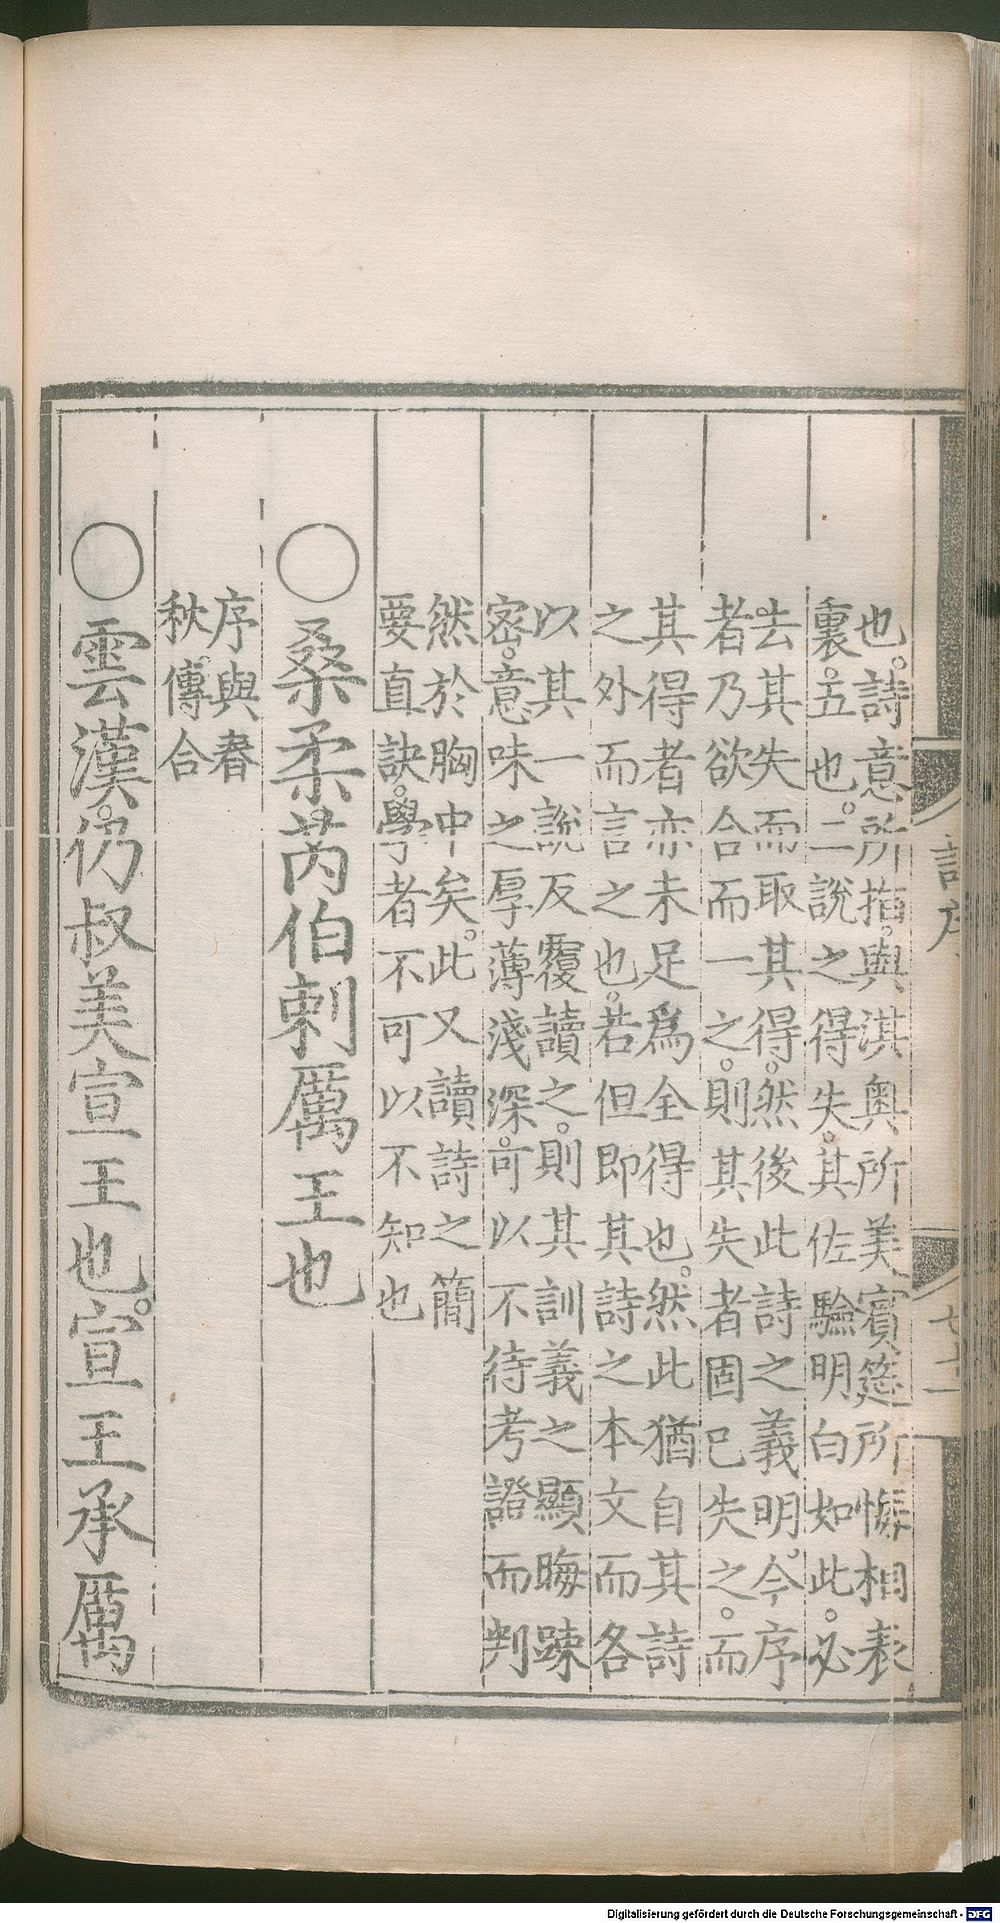 也。詩意所指。與淇奥所美賓筵所悔相表
裏。五也。二說之得失。其佐驗明白如此。必
去其失而取其得。然後此詩之義明。今序
者乃欲合而一之。則其失者固已失之。而
其得者亦未足爲全得也。然此猶自其詩
之外而言之也。若但即其詩之本文而各
以其一說反覆讀之。則其訓義之顯晦踈
密。意味之厚薄淺深。可以不待考證而判
然於胸中矣。此又讀詩之簡
要直訣。學者不可以不知也
○桑柔。芮伯刺厲王也
序與春
秋傳合
○雲漢。仍叔美宣王也。宣王承厲
七十一
Digitalisierung gefördert durch die Deutsche Forschungsgemeinschaft - DFG